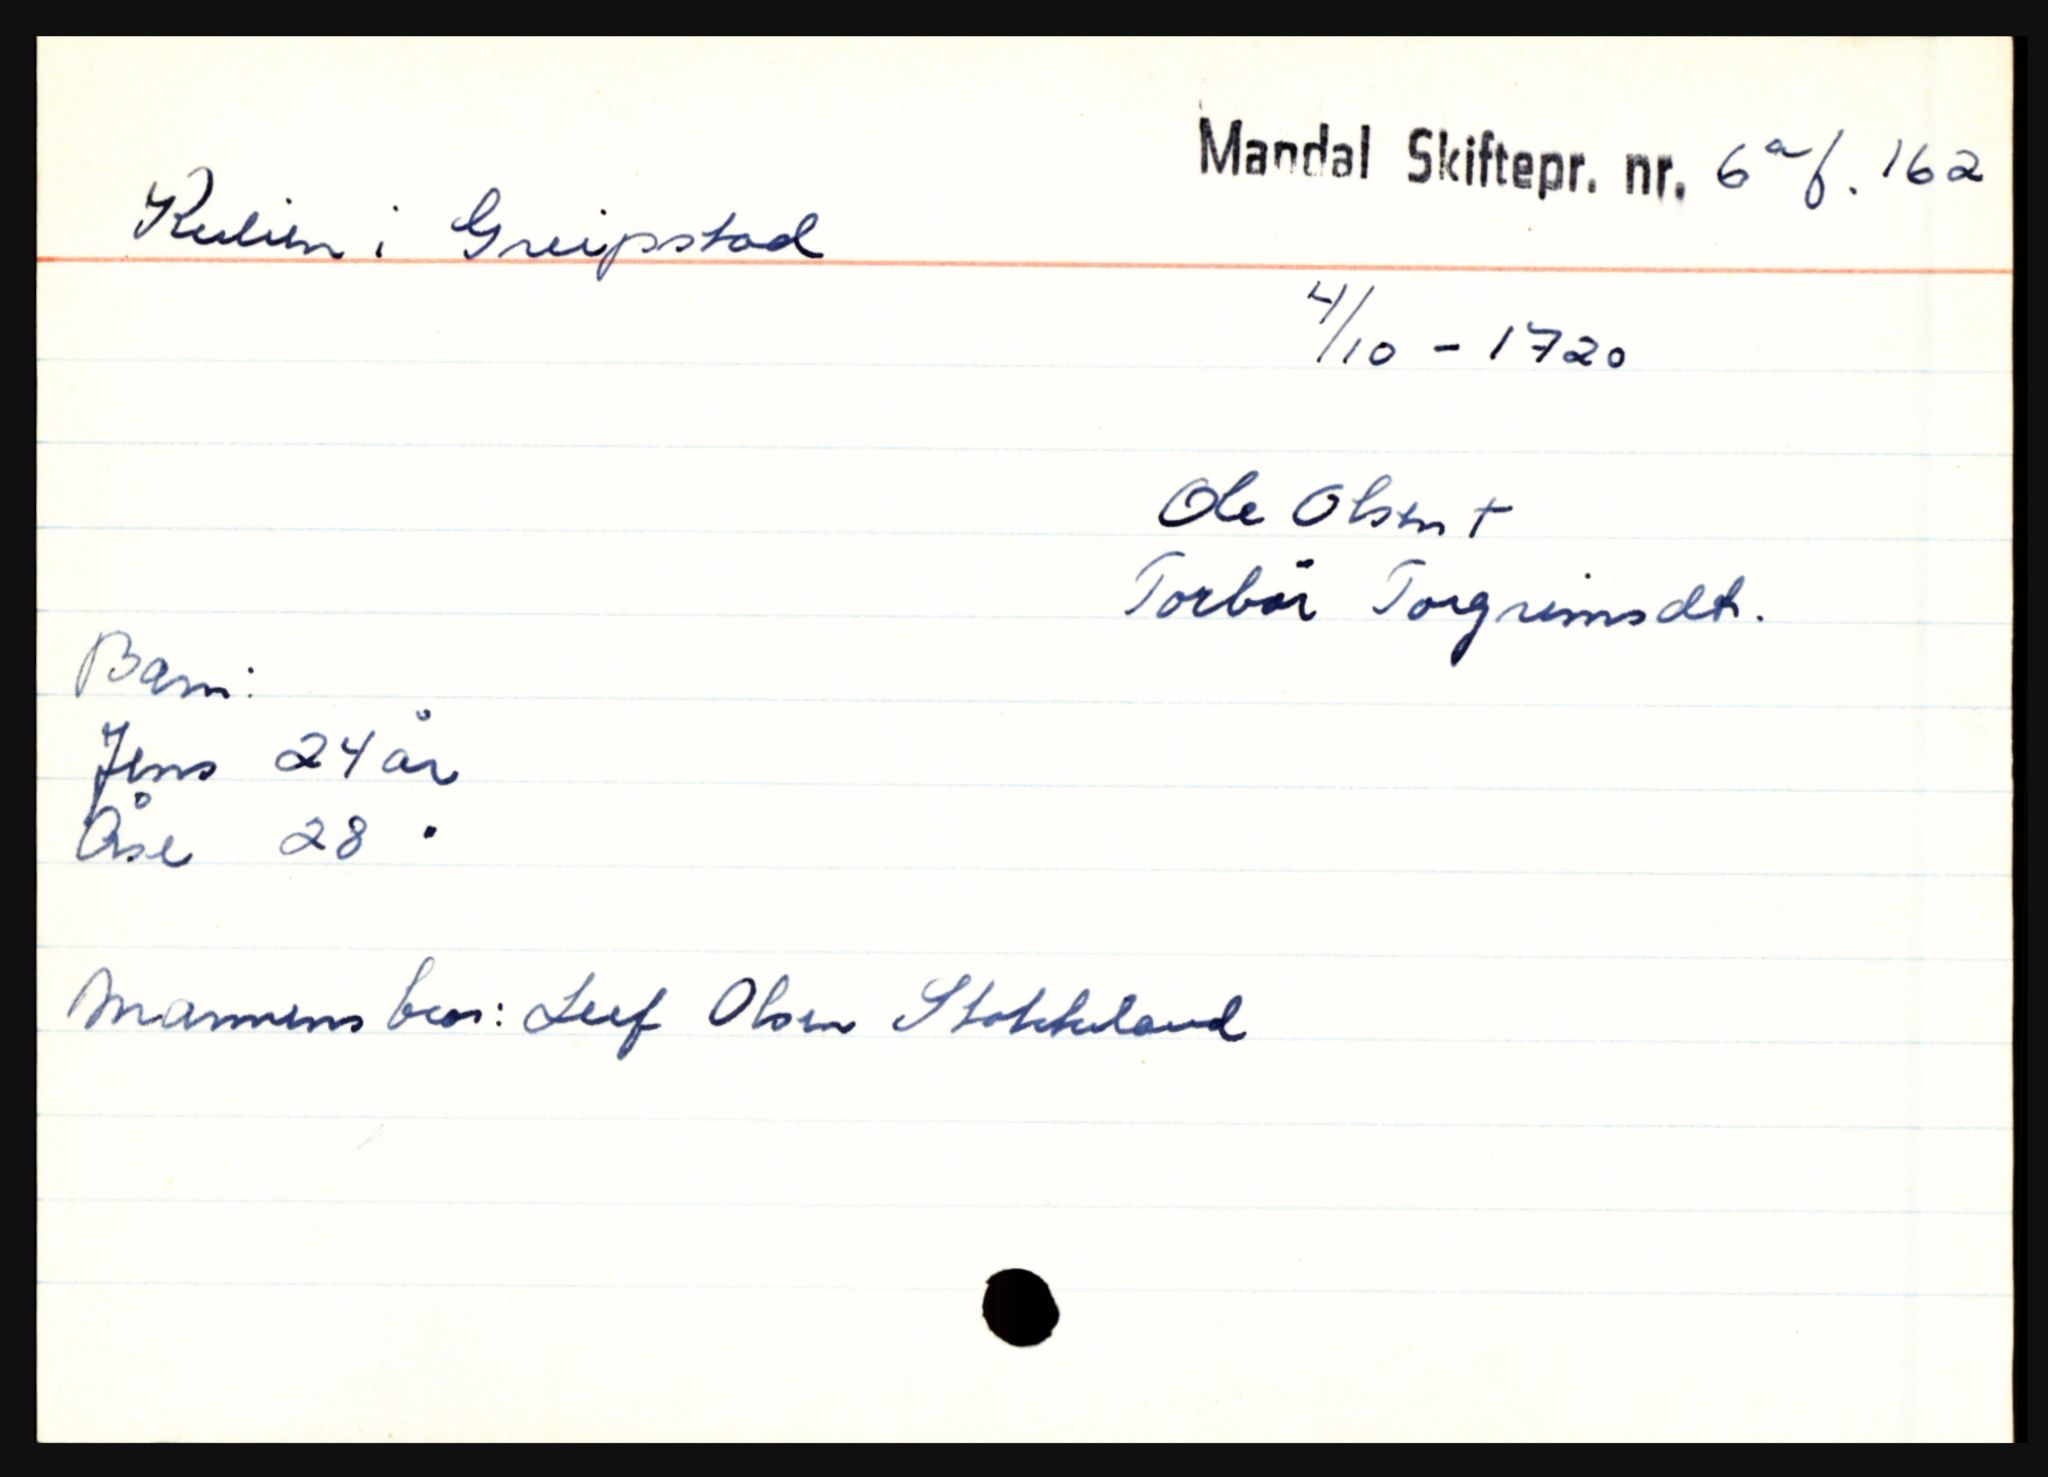 Mandal Skiftepr. nr. 6a f. 162
Kulien i Greipstad
4/10 - 1720
Ole Olsen +
Torbör Torgrimsdt.
Barn:
Jens 24 år
Åse 28 "
Mannens bror: Leef Olsen Stokkeland